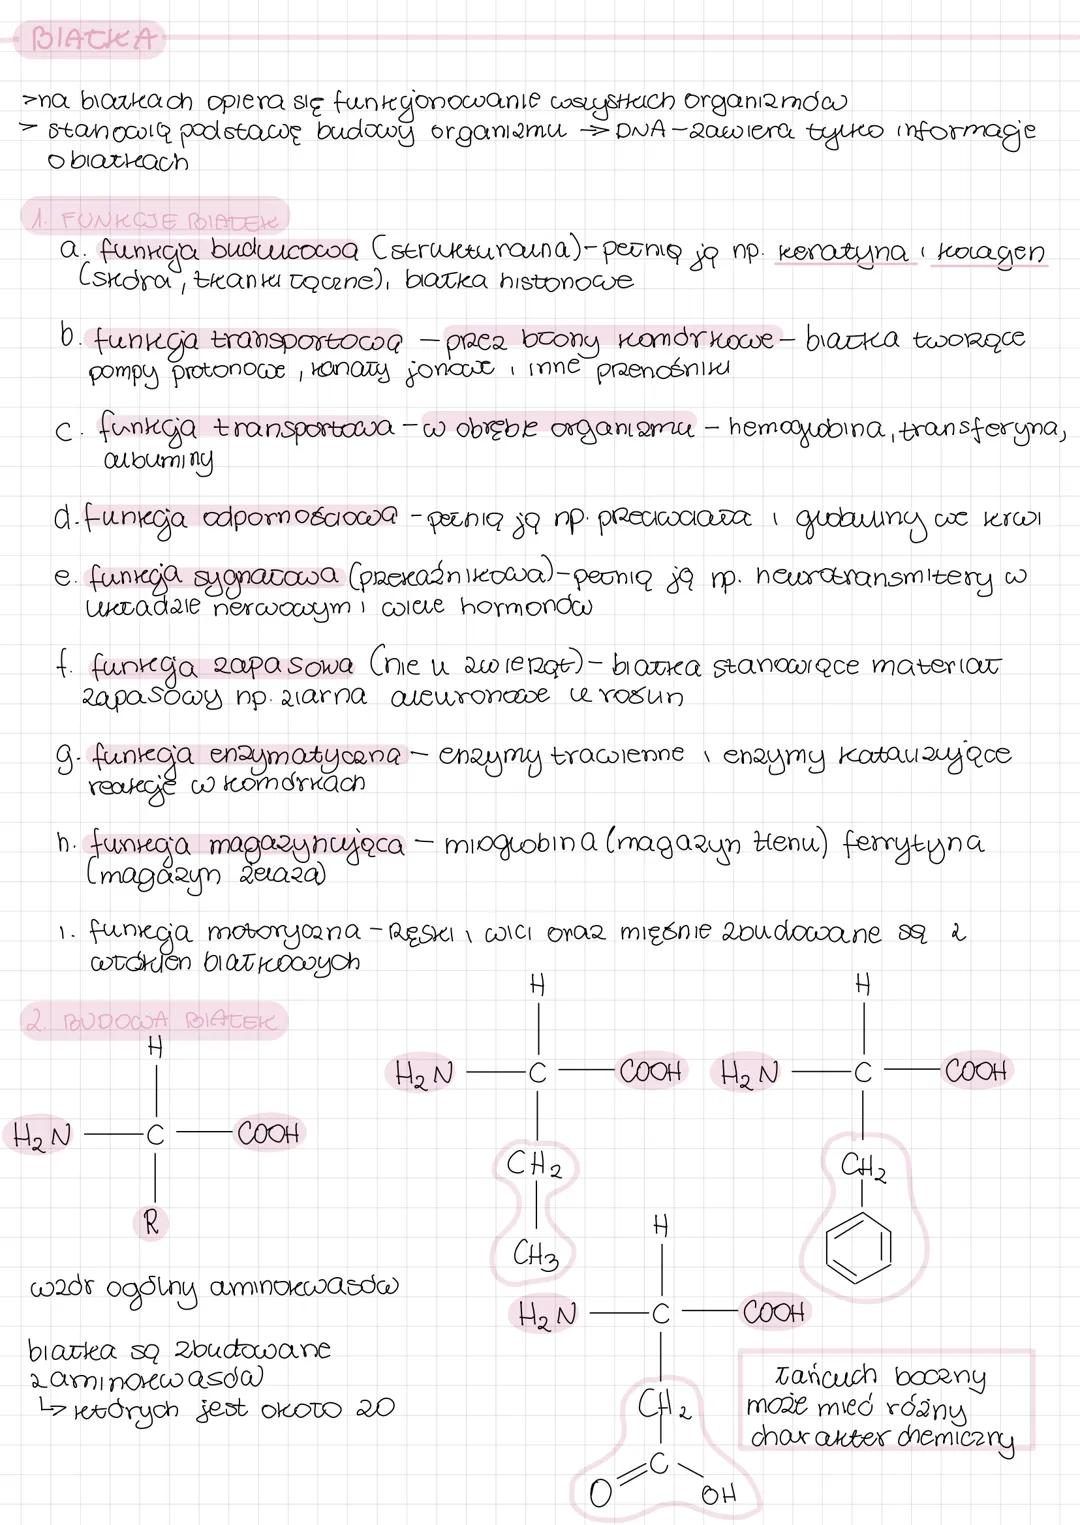 BIAŁKA
>na białkach opiera się funkcjonowanie wszystkich organizmów
> stanowią podstawę budowy organizmu → DNA-zawiera tylko informacje
o białkach
1. FUNKCJE BIAŁEK
a. funkcja budulcowa (strukturalna)-pełnią ją np. keratyna i kolagen
(skóra, tkanki łączne), białka histonowe
b. funkcja transportowa - przez błony komórkowe - białka tworzące
pompy protonowe, kanały jonowe i inne przenośniki
c. funkcja transportowa - w obrębie organizmu - hemoglobina, transferyna,
albuminy
d. funkcja odpornościowa - pełnią ją np. przeciwciała i globuliny we krwi
e. funkcja sygnałowa (przekaźnikowa)-pełnią ją np. neurotransmitery w
układzie nerwowym i wiele hormonów
f. funkcja zapasowa (nie u zwierząt)- białka stanowiące materiał
zapasowy np. ziarna aleuronowe u roślin
g. funkcja enzymatyczna - enzymy trawienne i enzymy katalizujące
reakcje w komórkach
h. funkcja magazynująca - mioglobina (magazyn tlenu) ferrytyna
(magazyn żelaza)
i. funkcja motoryczna - rzęski i wici oraz mięśnie zbudowane są z
włókien białkowych
2. BUDOWA BIAŁEK
H
H₂N C COOH
R
H
H₂N C COOH
CH₂
CH₃
H
H₂N C COOH
CH₂
H
H₂N C COOH
CH₂
C
O OH
wzór ogólny aminokwasów
białka są zbudowane
z aminokwasów
↳ których jest około 20
łańcuch boczny
może mieć różny
charakter chemiczny